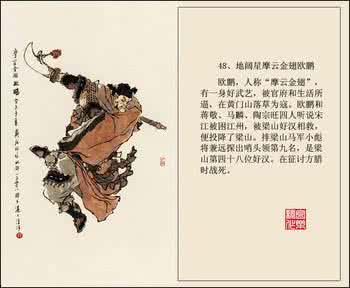 48、地阔星摩云金翅欧鹏
欧鹏，人称“摩云金翅”，
有一身好武艺，被官府和生活所
逼，在黄门山落草为寇。欧鹏和
蒋敬、马麟、陶宗旺四人听说宋
江被困江州，被梁山好汉相救，
便投降了梁山。排梁山马军小彪
将兼远探出哨头领第九名，是梁
山第四十八位好汉。在征讨方腊
时战死。
摩云金翅 欧鹏